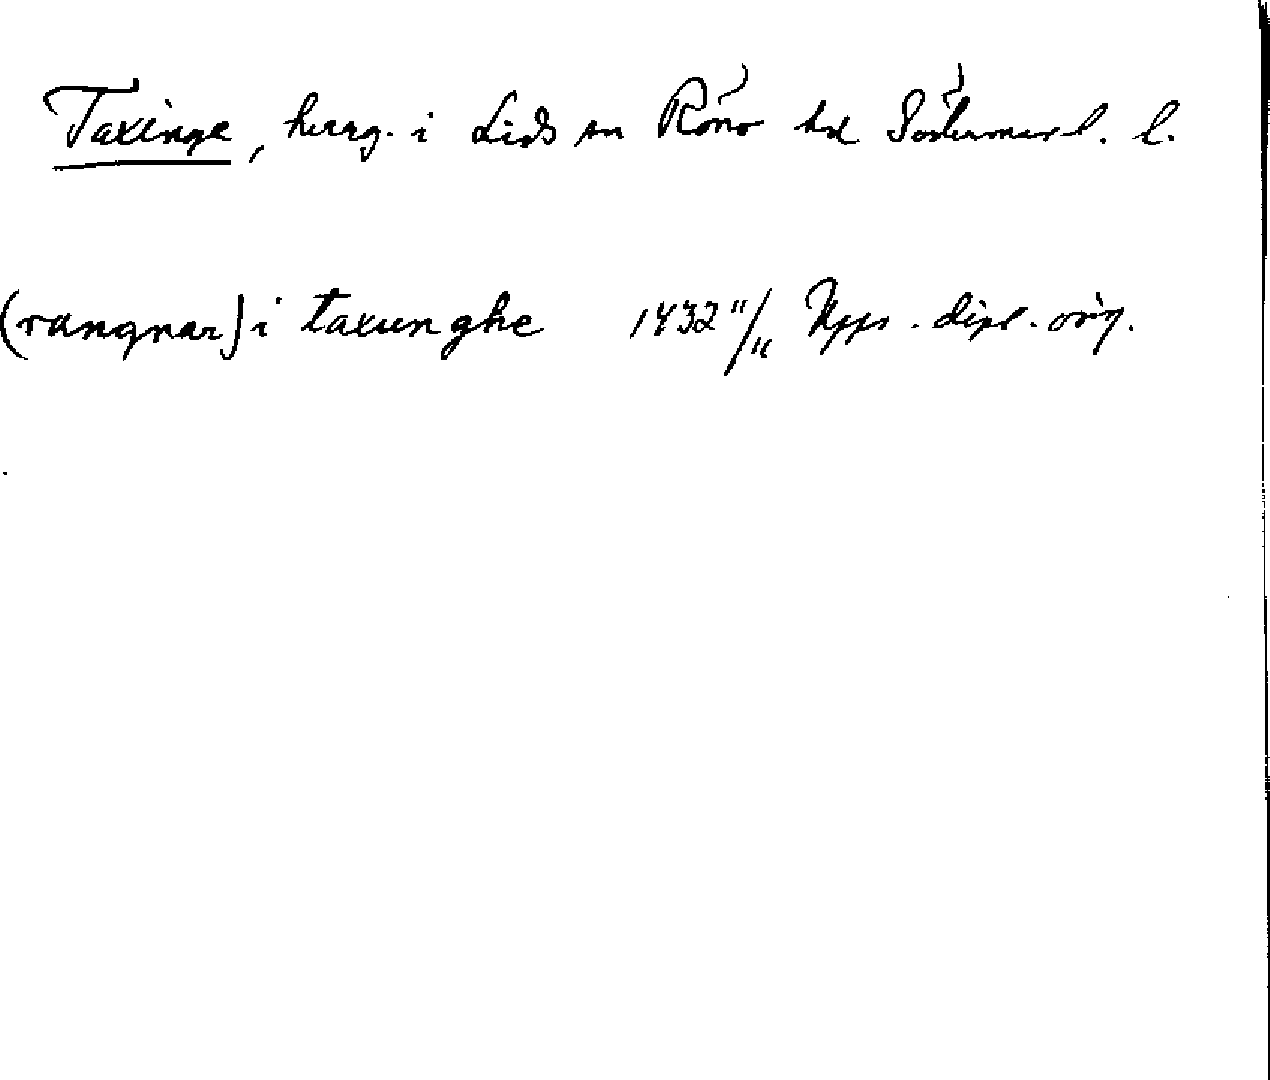 Taxinge, herrg. i Lids sn Rönö hd Södermanl. l.
(rangnar) i taxunghe 1432 11/11 Upps. dipl. orig.